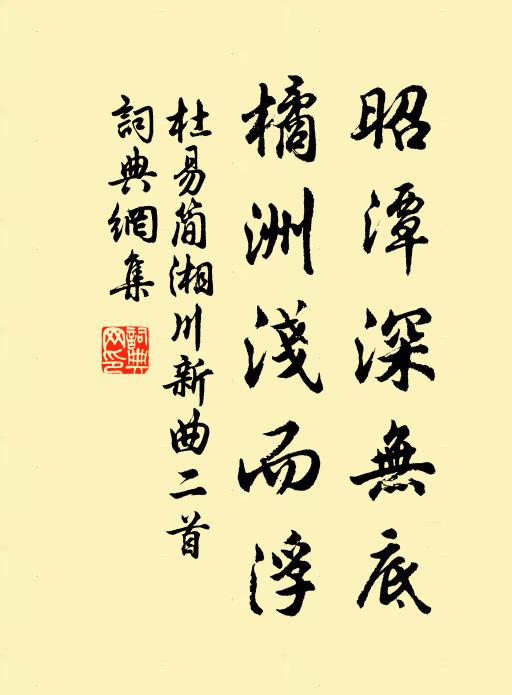 昭潭深無底
橘洲淺而浮
杜易簡湘川新曲二首
詞典網集
詞典網印